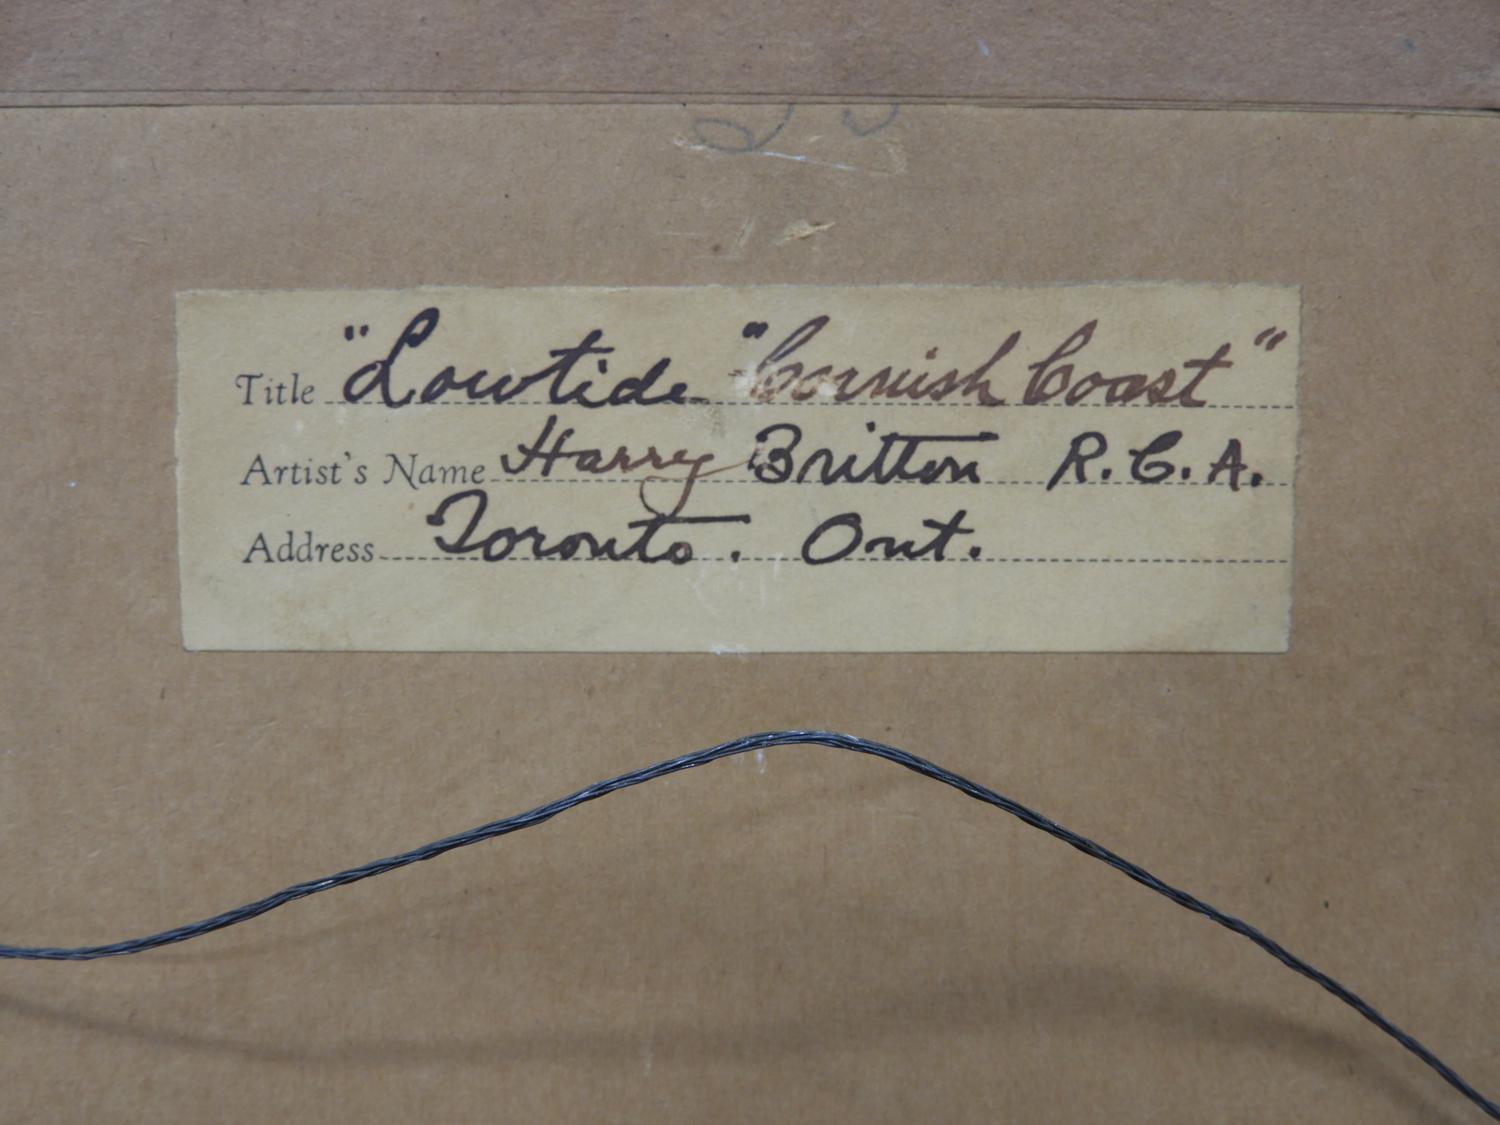 Title "Lowtide "Cornish Coast"
Artist's Name Harry Britton R.C.A.
Address Toronto. Ont.